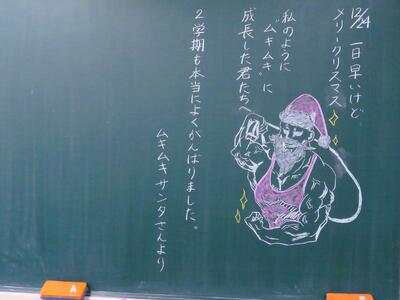 12/24 一日早いけど
メリークリスマス
私のように
"ムキムキ"に
成長した君たちへ
2学期も本当によくがんばりました。
ムキムキサンタさんより